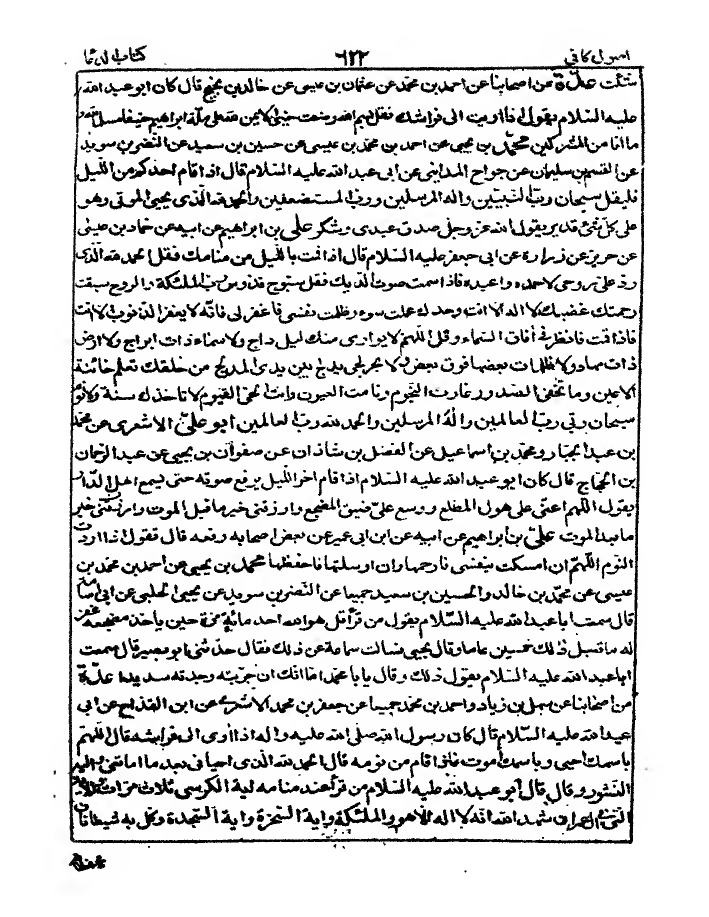 اصول کافی ٦٢٢ کتاب الدعا
شئت عدّة من اصحابنا عن احمد بن محمد عن عثمان بن عیسی عن خالد بن نجیح قال کان ابو عبد الله
علیه السلام یقول اذا اویت الی فراشک فقل بسم الله وضعت جنبی الایمن لله علی ملّة ابراهیم حنیفا مسلما
ما انا من المشرکین محمّد بن یحیی عن احمد بن محمد بن عیسی عن حسین بن سعید عن النضر بن سوید
عن القسم بن سلیمان عن جراح المداینی عن ابی عبد الله علیه السلام قال اذا قام احدکم من اللیل
فلیقل سبحان ربّ النبیّین واله المرسلین وربّ المستضعفین والحمد لله الذی یحیی الموتی وهو
علی کلّ شئ قدیر یقول الله عزّ وجل صدق عبدی وشکر علی بن ابراهیم عن ابیه عن حماد بن عیسی
عن حریز عن زرارة عن ابی جعفر علیه السلام قال اذا قمت باللیل من منامک فقل الحمد لله الذی
ردّ علیّ روحی لاحمده واعبده فاذا سمعت صوت الدیک فقل سبّوح قدّوس ربّ الملئکة والروح سبقت
رحمتک غضبک لا اله الا انت وحدک عملت سوء وظلمت نفسی فاغفر لی فانّه لا یغفر الذنوب الا انت
فاذا قمت فانظر فی آفاق السماء وقل اللهم لا یواری منک لیل داج ولا سماء ذات ابراج ولا ارض
ذات مهاد ولا ظلمات بعضها فوق بعض ولا بحر لجی یدلج بین یدی المدلج من خلقک تعلم خائنة
الاعین وما تخفی الصدور غارت النجوم ونامت العیون وانت الحیّ القیوم لا تاخذک سنة ولا نوم
سبحان ربّی ربّ العالمین واله المرسلین والحمد لله ربّ العالمین ابو علیّ الاشعری عن محمد
بن عبد الجبار ومحمد بن اسماعیل عن الفضل بن شاذان عن صفوان بن یحیی عن عبد الرحمان
بن الحجاج قال کان ابو عبد الله علیه السلام اذا قام اخر اللیل یرفع صوته حتی یسمع اهل الدار
یقول اللهم اعنّی علی هول المطلع ووسع علیّ ضیق المضجع وارزقنی خیر ما قبل الموت وارزقنی خیر
ما بعد الموت علیّ بن ابراهیم عن ابیه عن ابن ابی عمیر عن بعض اصحابه رفعه قال تقول اذا اردت
النوم اللهم ان امسکت بنفسی فارحمها وان اوسلتها فاحفظها محمد بن یحیی عن احمد بن محمد بن
عیسی عن محمد بن خالد والحسین بن سعید جمیعا عن النضر بن سوید عن یحیی الحلبی عن ابی اسامة
قال سمعت ابا عبد الله علیه السّلام یقول من قرأ قل هو الله احد مائة مرّة حین یاخذ مضجعه غفر
له ما قبل ذلک خمسین عاما وقال یحیی فسالت سماعة عن ذلک فقال حدّثنی ابو بصیر قال سمعت
ابا عبد الله علیه السلام یقول ذلک وقال یا با محمد اما انک ان جرّبته وجدته سدیدا عدّة
من اصحابنا عن سهل بن زیاد واحمد بن محمد جمیعا عن جعفر بن محمد الاشعری عن ابن القداح عن ابی
عبد الله علیه السّلام قال کان رسول الله صلی الله علیه واله اذا اوی الی فراشه قال اللهم
باسمک احیی وباسمک اموت فاذا قام من نومه قال الحمد لله الذی احیانی بعد ما اماتنی والیه
النشور وقال قال ابو عبد الله علیه السلام من قرأ عند منامه ایة الکرسی ثلاث مرات والایة
التی فی آل عمران شهد الله انّه لا اله الا هو والملئکة وایة السخرة وایة السجدة وکل به شیطانان